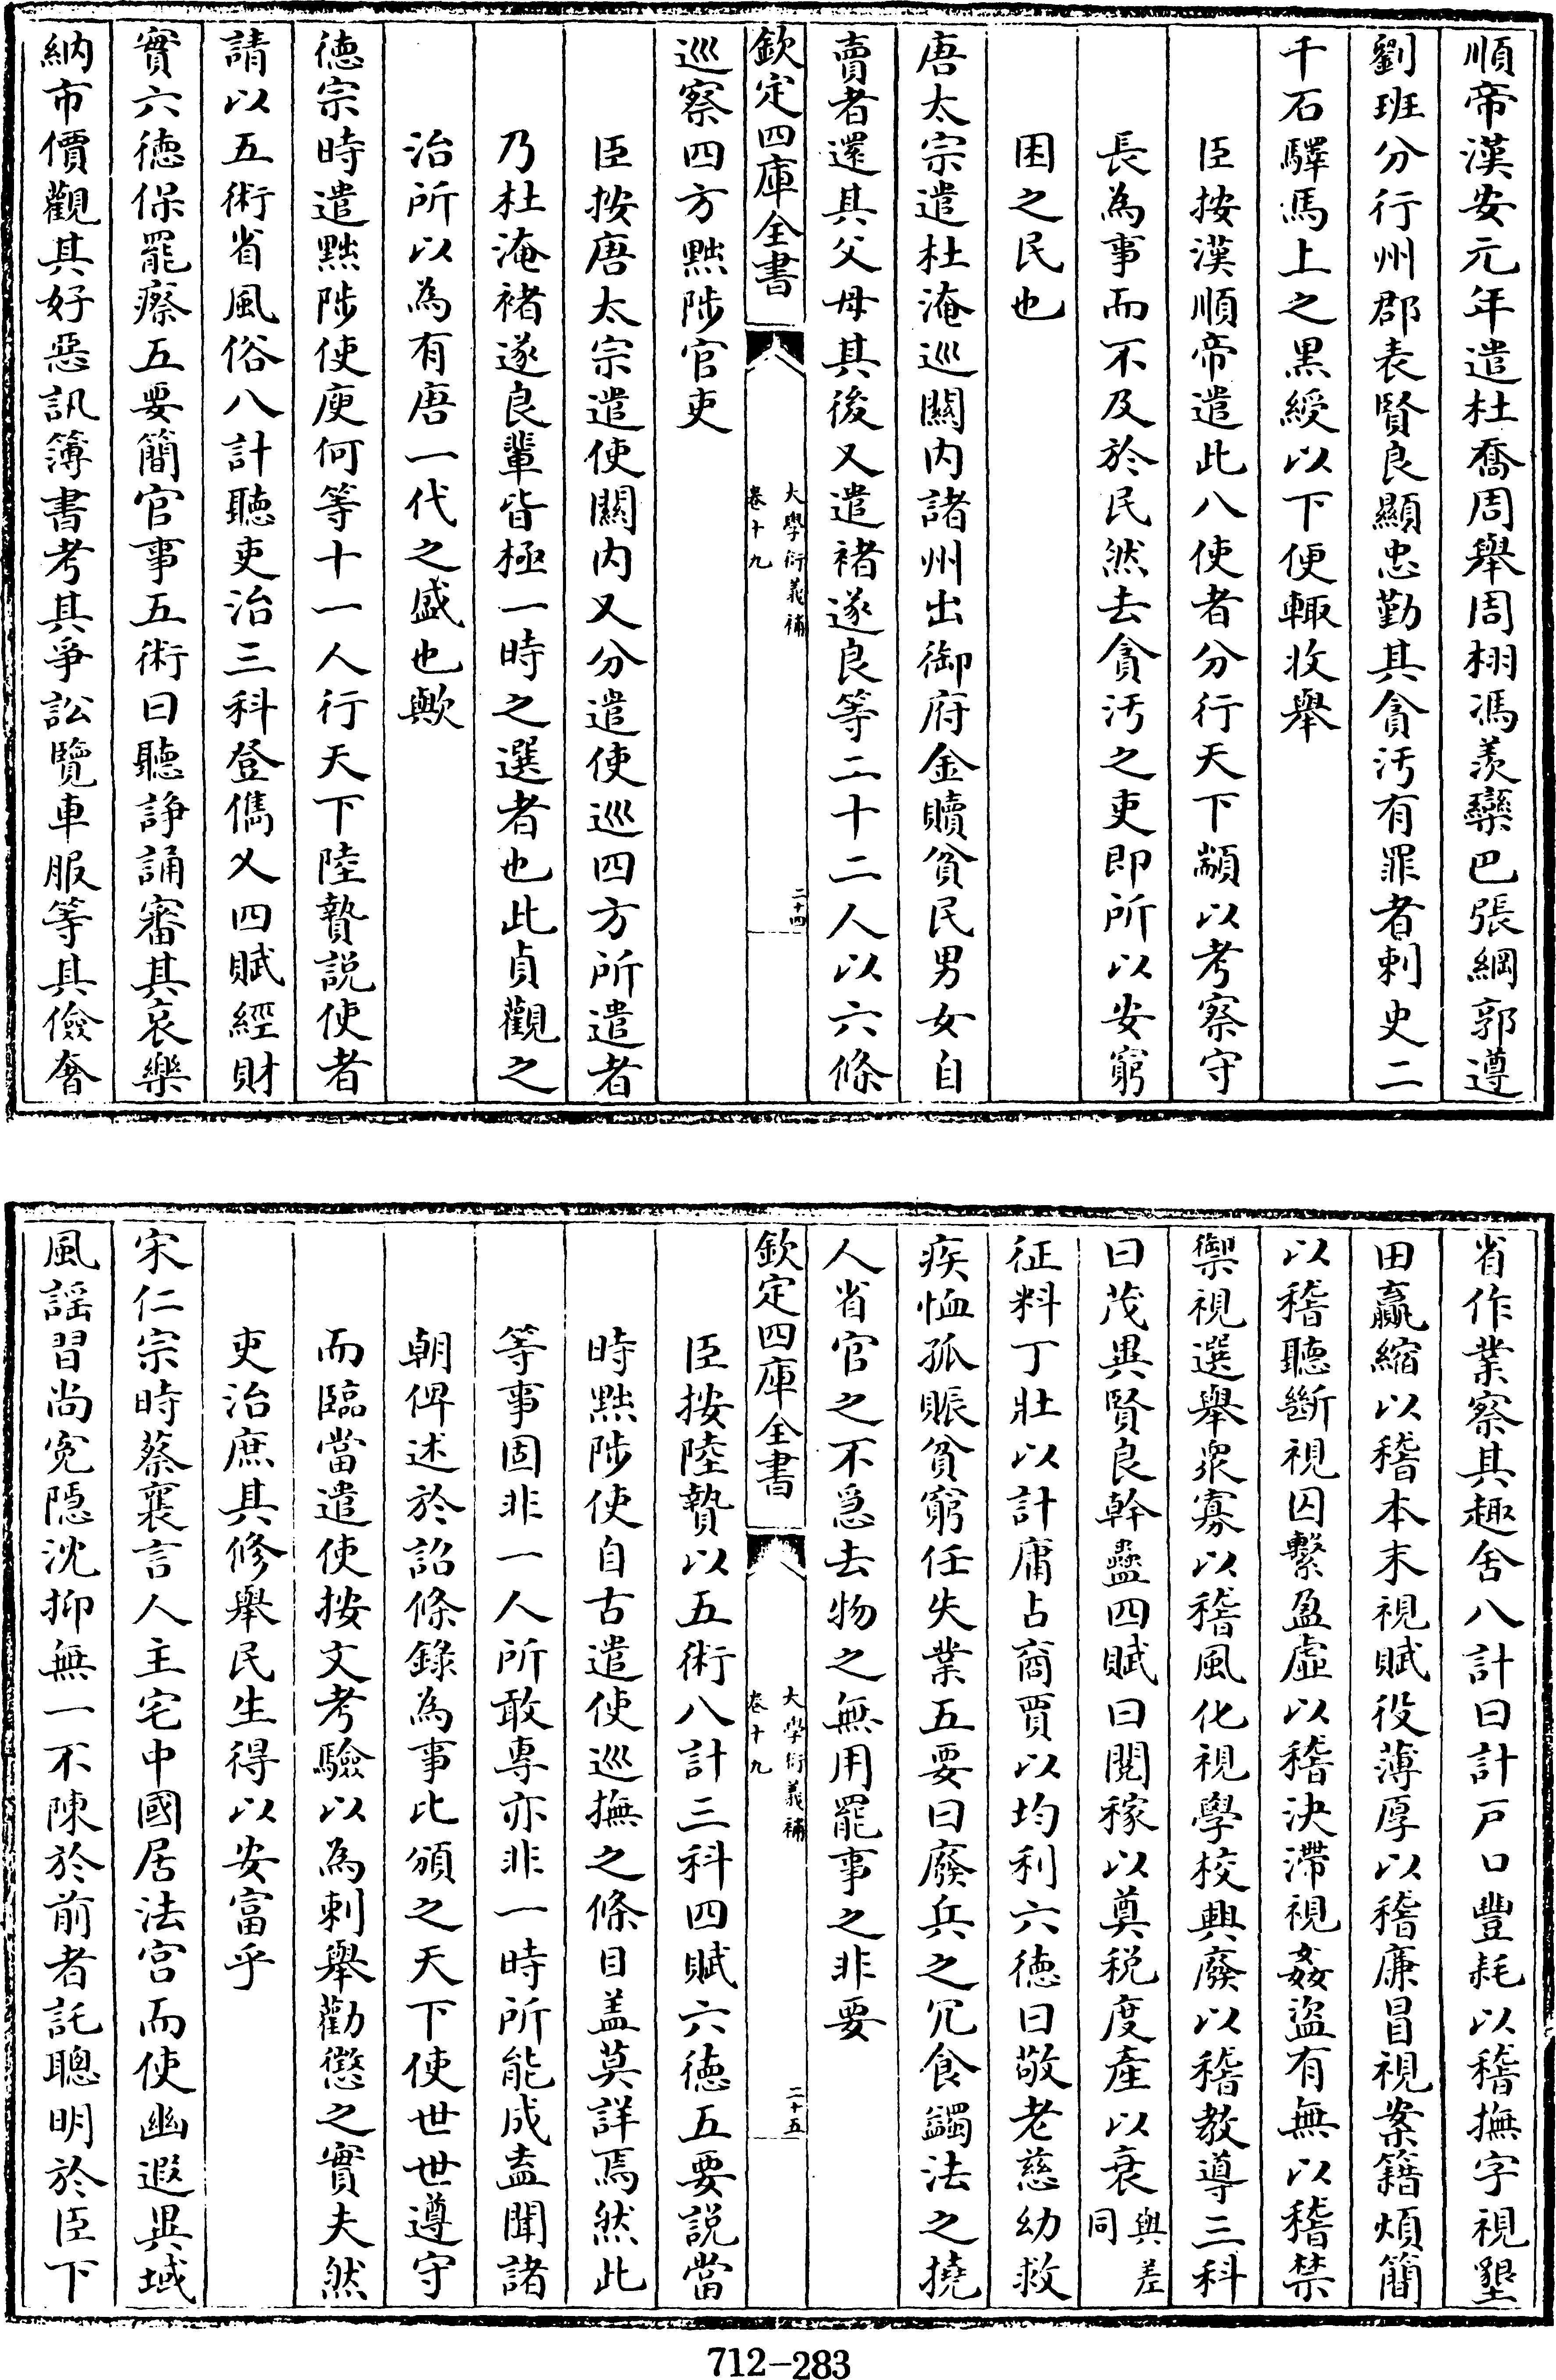 順帝漢安元年遣杜喬周舉周栩馮羨欒巴張綱郭遵
劉班分行州郡表賢良顯忠勤其貪汚有罪者刺史二
千石驛馬上之黒綬以下便輙收舉
臣按漢順帝遣此八使者分行天下顓以考察守
長為事而不及於民然去貪汚之吏即所以安窮
困之民也
唐太宗遣杜淹巡關内諸州出御府金贖貧民男女自
賣者還其父母其後又遣褚遂良等二十二人以六條
欽定四庫全書
大學衍義補
卷十九
二十四
巡察四方黜陟官吏
臣按唐太宗遣使關内又分遣使巡四方所遣者
乃杜淹褚遂良輩皆極一時之選者也此貞觀之
治所以為有唐一代之盛也歟
徳宗時遣黜陟使庾何等十一人行天下陸贄説使者
請以五術省風俗八計聽吏治三科登儁乂四賦經財
實六徳保罷瘵五要簡官事五術曰聽諍誦審其哀樂
納市價觀其好惡訊簿書考其爭訟覽車服等其儉奢
省作業察其趣舍八計曰計戸口豐耗以稽撫字視墾
田贏縮以稽本末視賦役薄厚以稽廉冒視案籍煩簡
以稽聽斷視囚繫盈虛以稽決滯視姦盜有無以稽禁
禦視選舉衆寡以稽風化視學校興廢以稽教導三科
曰茂異賢良幹蠱四賦曰閱稼以奠税度產以衰與差同
征料丁壯以計庸占商賈以均利六徳曰敬老慈幼救
疾恤孤賑貧窮任失業五要曰廢兵之冗食蠲法之撓
人省官之不急去物之無用罷事之非要
欽定四庫全書
大學衍義補
卷十九
二十五
臣按陸贄以五術八計三科四賦六徳五要説當
時黜陟使自古遣使巡撫之條目盖莫詳焉然此
等事固非一人所敢専亦非一時所能成盍聞諸
朝俾述於詔條錄為事比頒之天下使世世遵守
而臨當遣使按文考驗以為刺舉勸懲之實夫然
吏治庶其修舉民生得以安富乎
宋仁宗時蔡襄言人主宅中國居法宫而使幽遐異域
風謡習尚寃隠沈抑無一不陳於前者託聰明於臣下
712-283